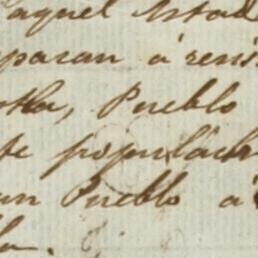 aquel Estad
paran á resis
Pueblo
te populach
un Pueblo á